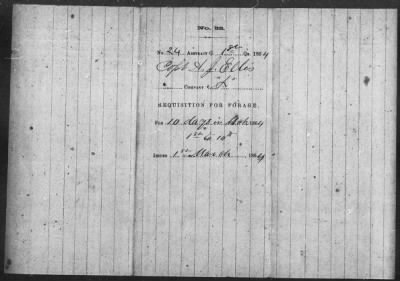 No. 32.
No. 24 Abstract G. 1st Qr. 1864
Capt A. J. Ellis
Company "F"
REQUISITION FOR FORAGE.
For 10 days in Mch 1864
1st to 10th
Issued 1st March 1864